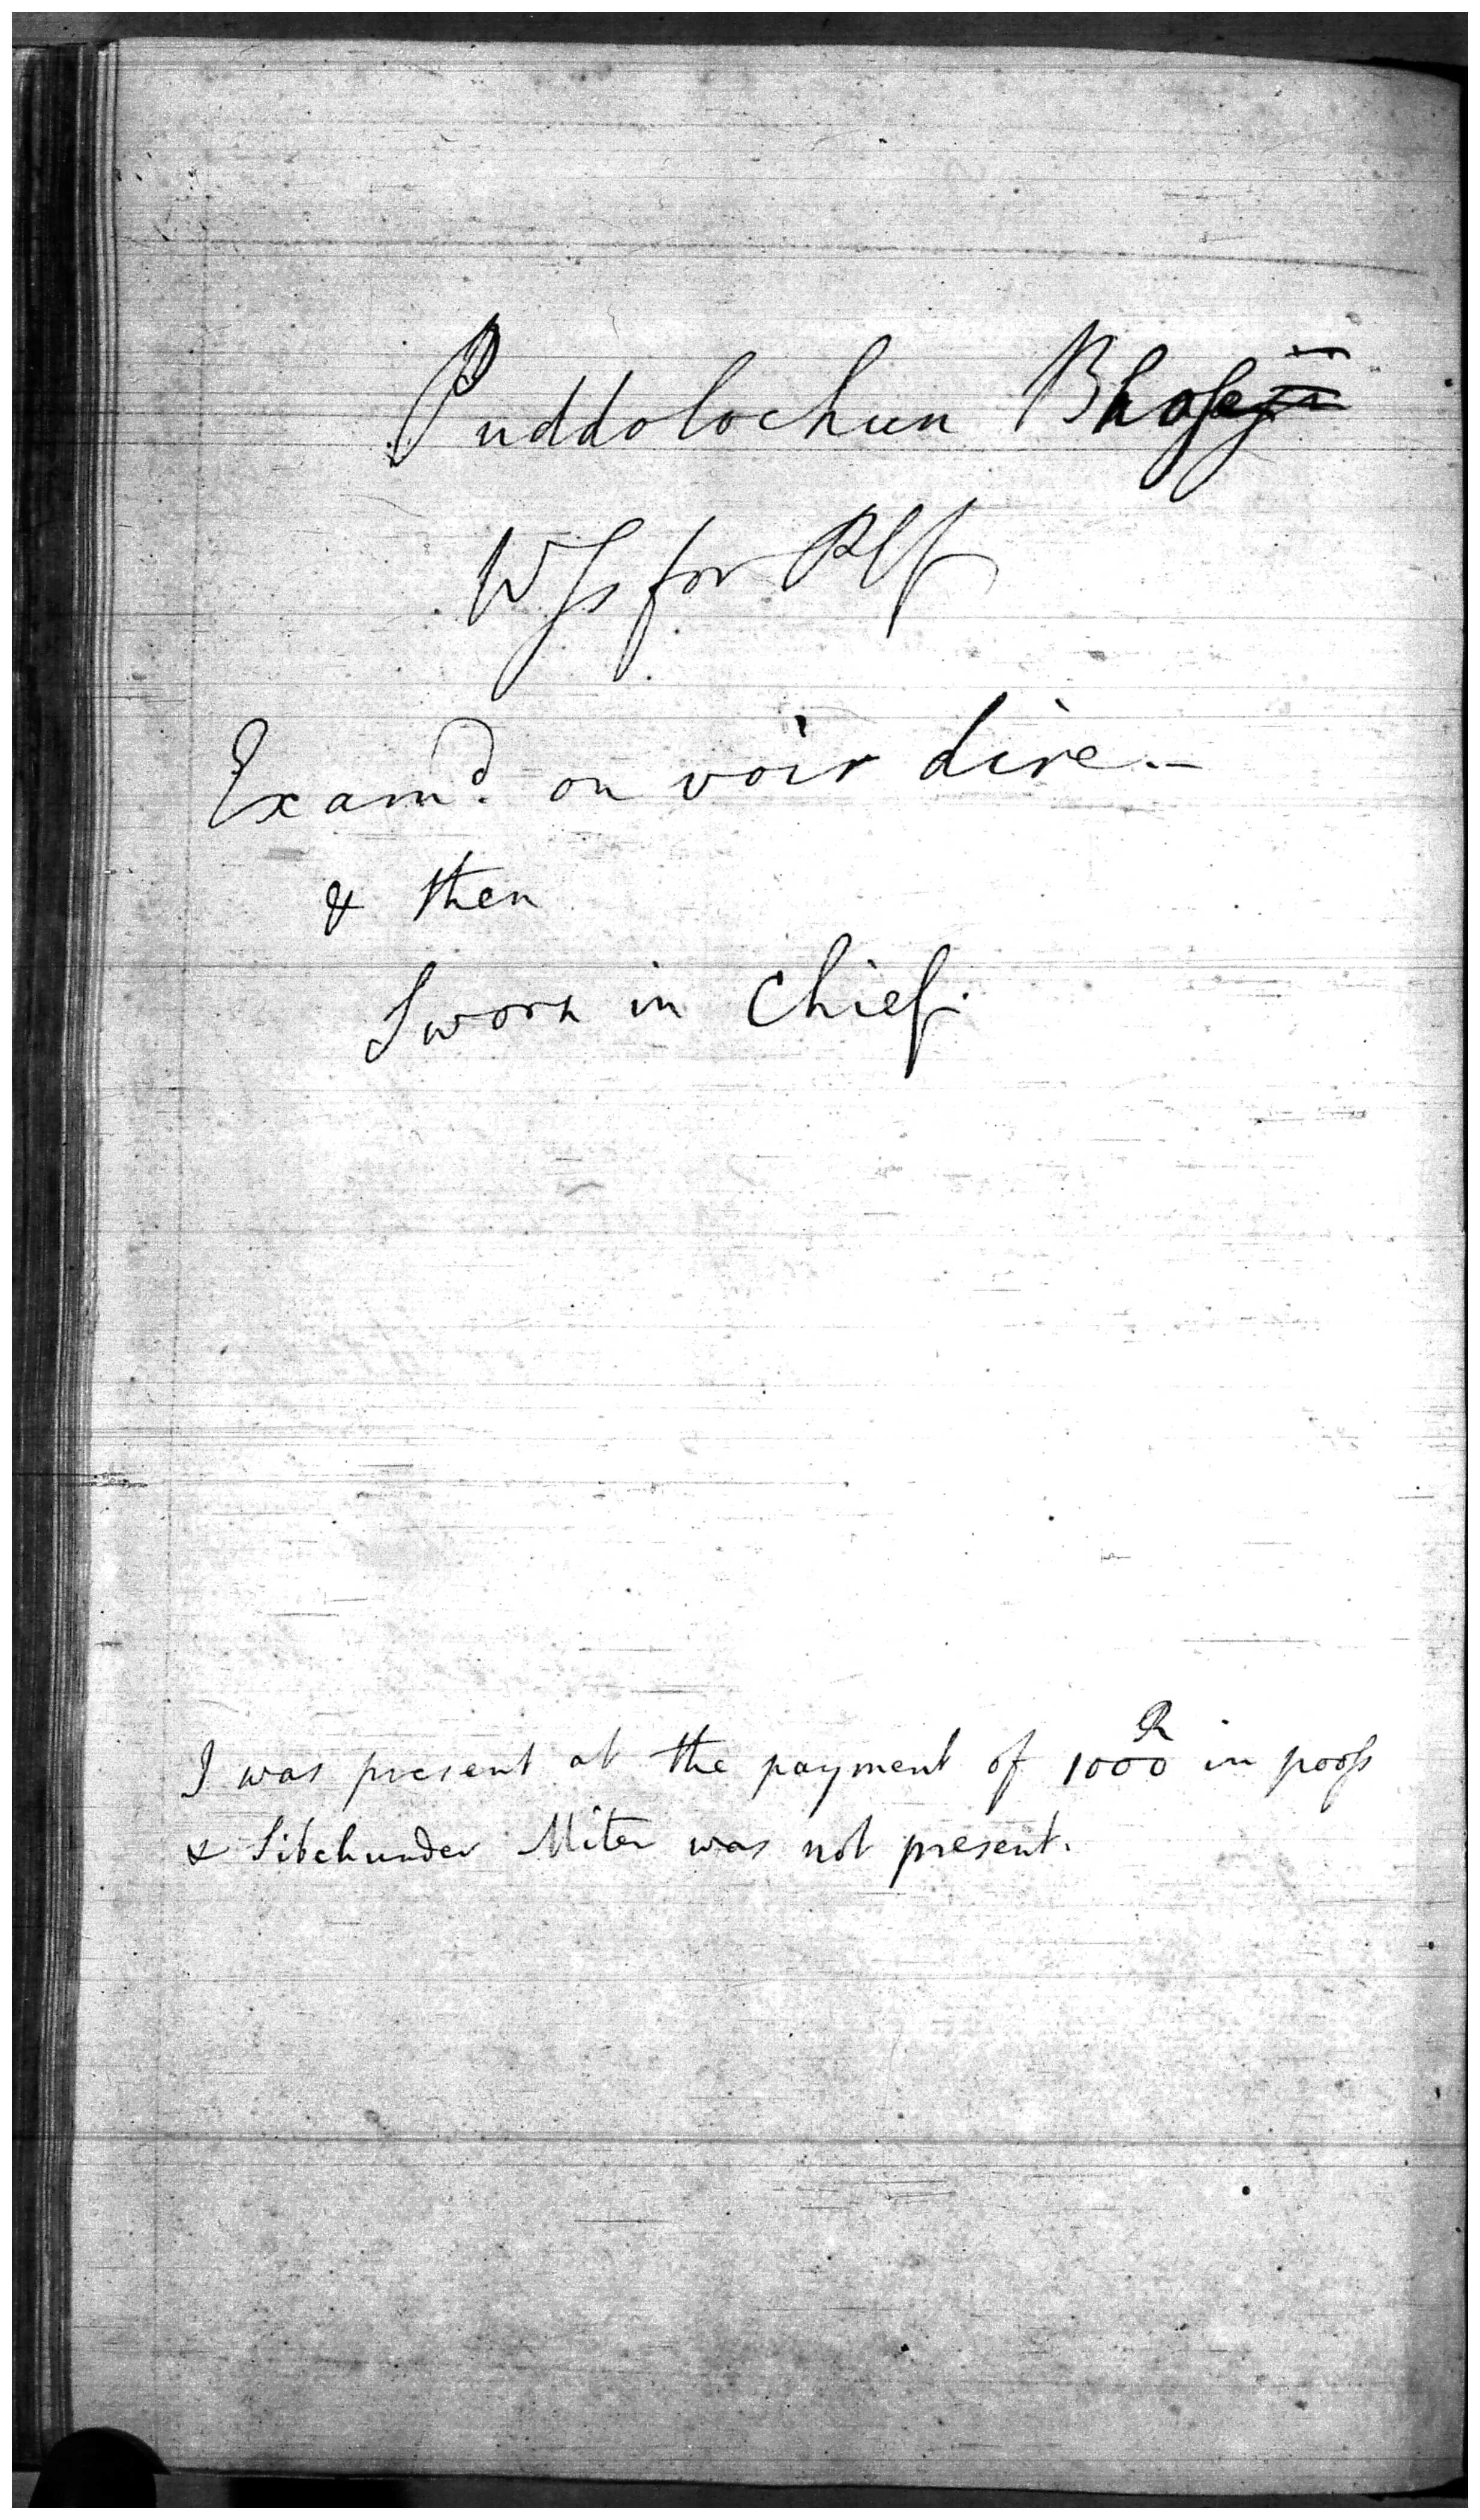 Puddolochun Bhose
Wſs for Plf
Examd. on voir dire.–
& then
Sworn in Chief.
R
I was present at the payment of 1000 in
& Sibchunder Miter was not present.